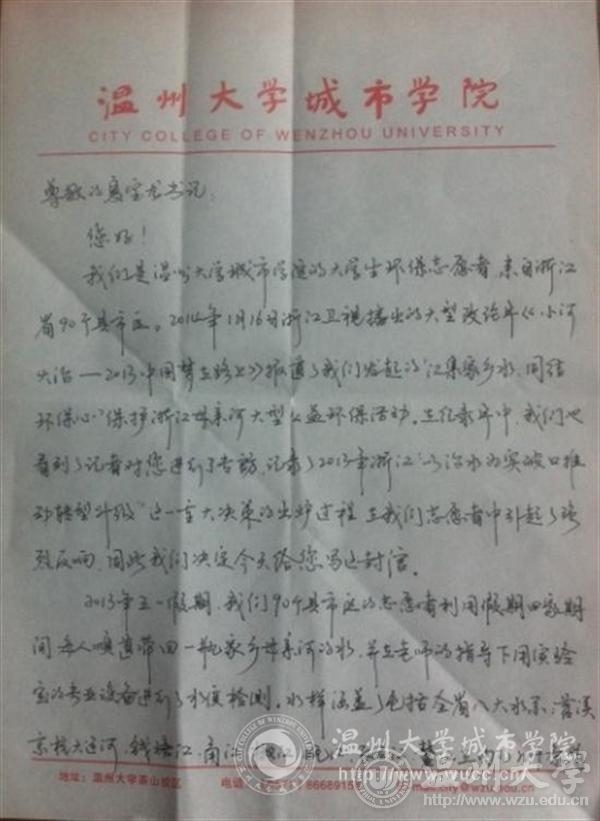 温州大学城市学院
CITY COLLEGE OF WENZHOU UNIVERSITY
尊敬的夏宝龙书记:
您好!
我们是温州大学城市学院的大学生环保志愿者,来自浙江
省90个县市区。2014年1月16日浙江卫视播出的大型政论片《小河
大治——2013中国梦在路上》报道了我们发起的“江集家乡水,同结
环保心”保护浙江母亲河大型公益环保活动。在纪录片中,我们也
看到了记者对您进行了专访,记录了2013年浙江“以治水为突破口推
动转型升级”这一重大决策的出炉过程,在我们志愿者中引起了强
烈反响,因此我们决定今天给您写这封信。
2013年五一假期,我们90个县市区的志愿者利用假期回家期
间每人顺道带回一瓶家乡母亲河的水,并在老师的指导下用实验
室的专业设备进行了水质检测。水样涵盖了包括全省八大水系:苕溪
京杭大运河、钱塘江、甬江、椒江、瓯江
地址:温州大学茶山校区
电话:0577-8668915
mail:city@wzu.edu.cn
温州大学城市学院
http://www.wucc.cn/
温州大学
http://www.wzu.edu.cn